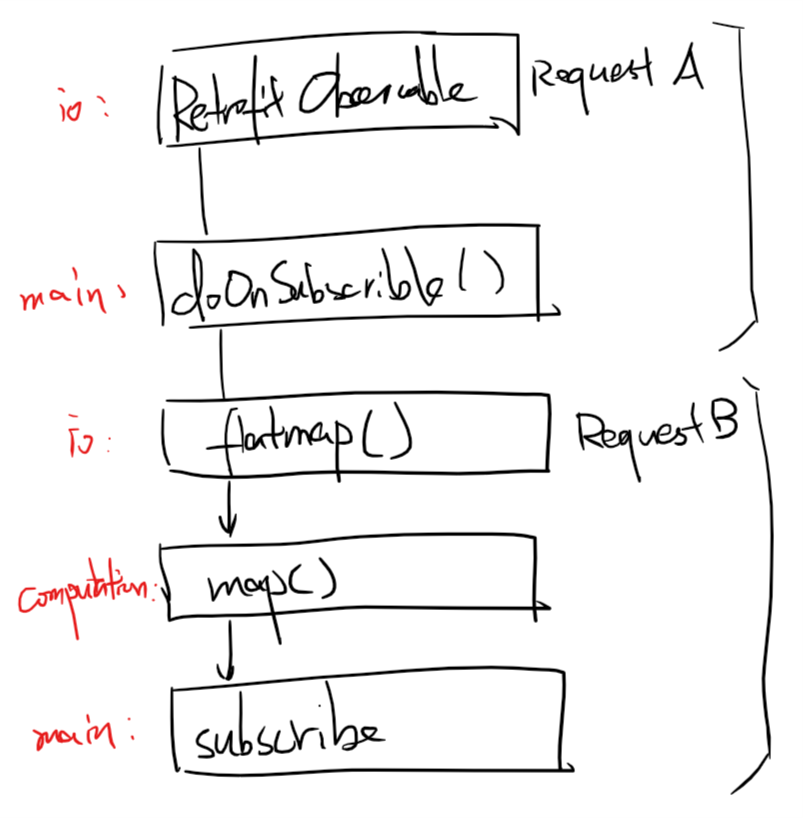 io: Retrofit Observable Request A
main: doOnSubscrible()
io: flatmap() Request B
Computation: map()
main: subscribe